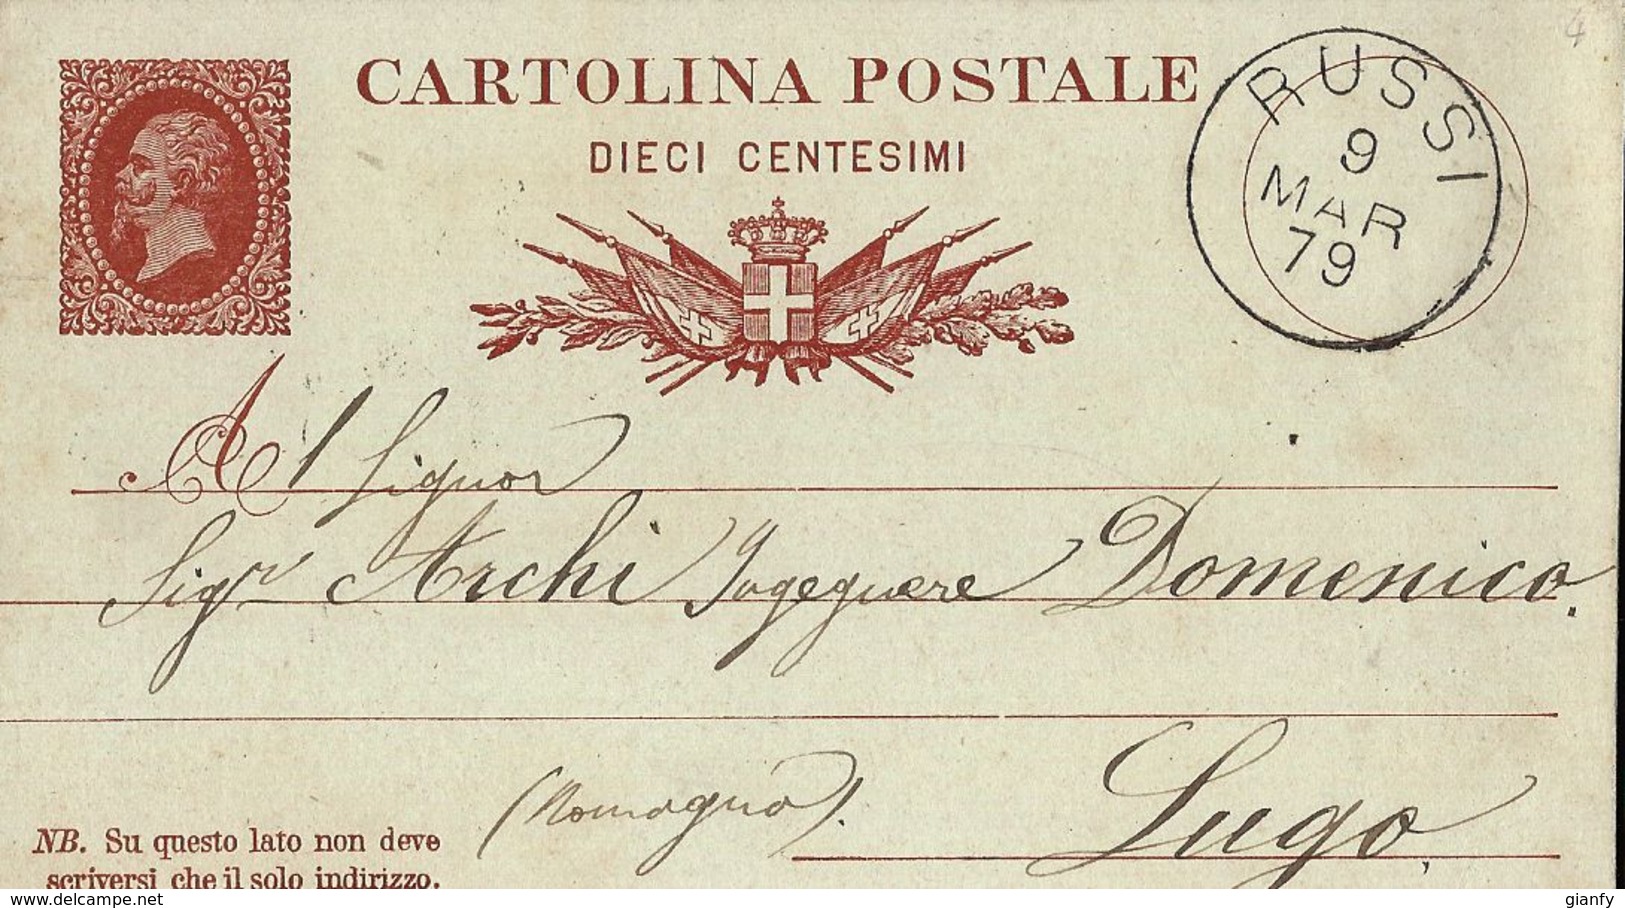 4
CARTOLINA POSTALE
DIECI CENTESIMI
RUSSI
9
MAR
79
Al Signor
Sigr Archi Ingegnere Domenico.
(Romagna). Lugo,
NB. Su questo lato non deve
scriversi che il solo indirizzo.
delcampe.net
gianfy